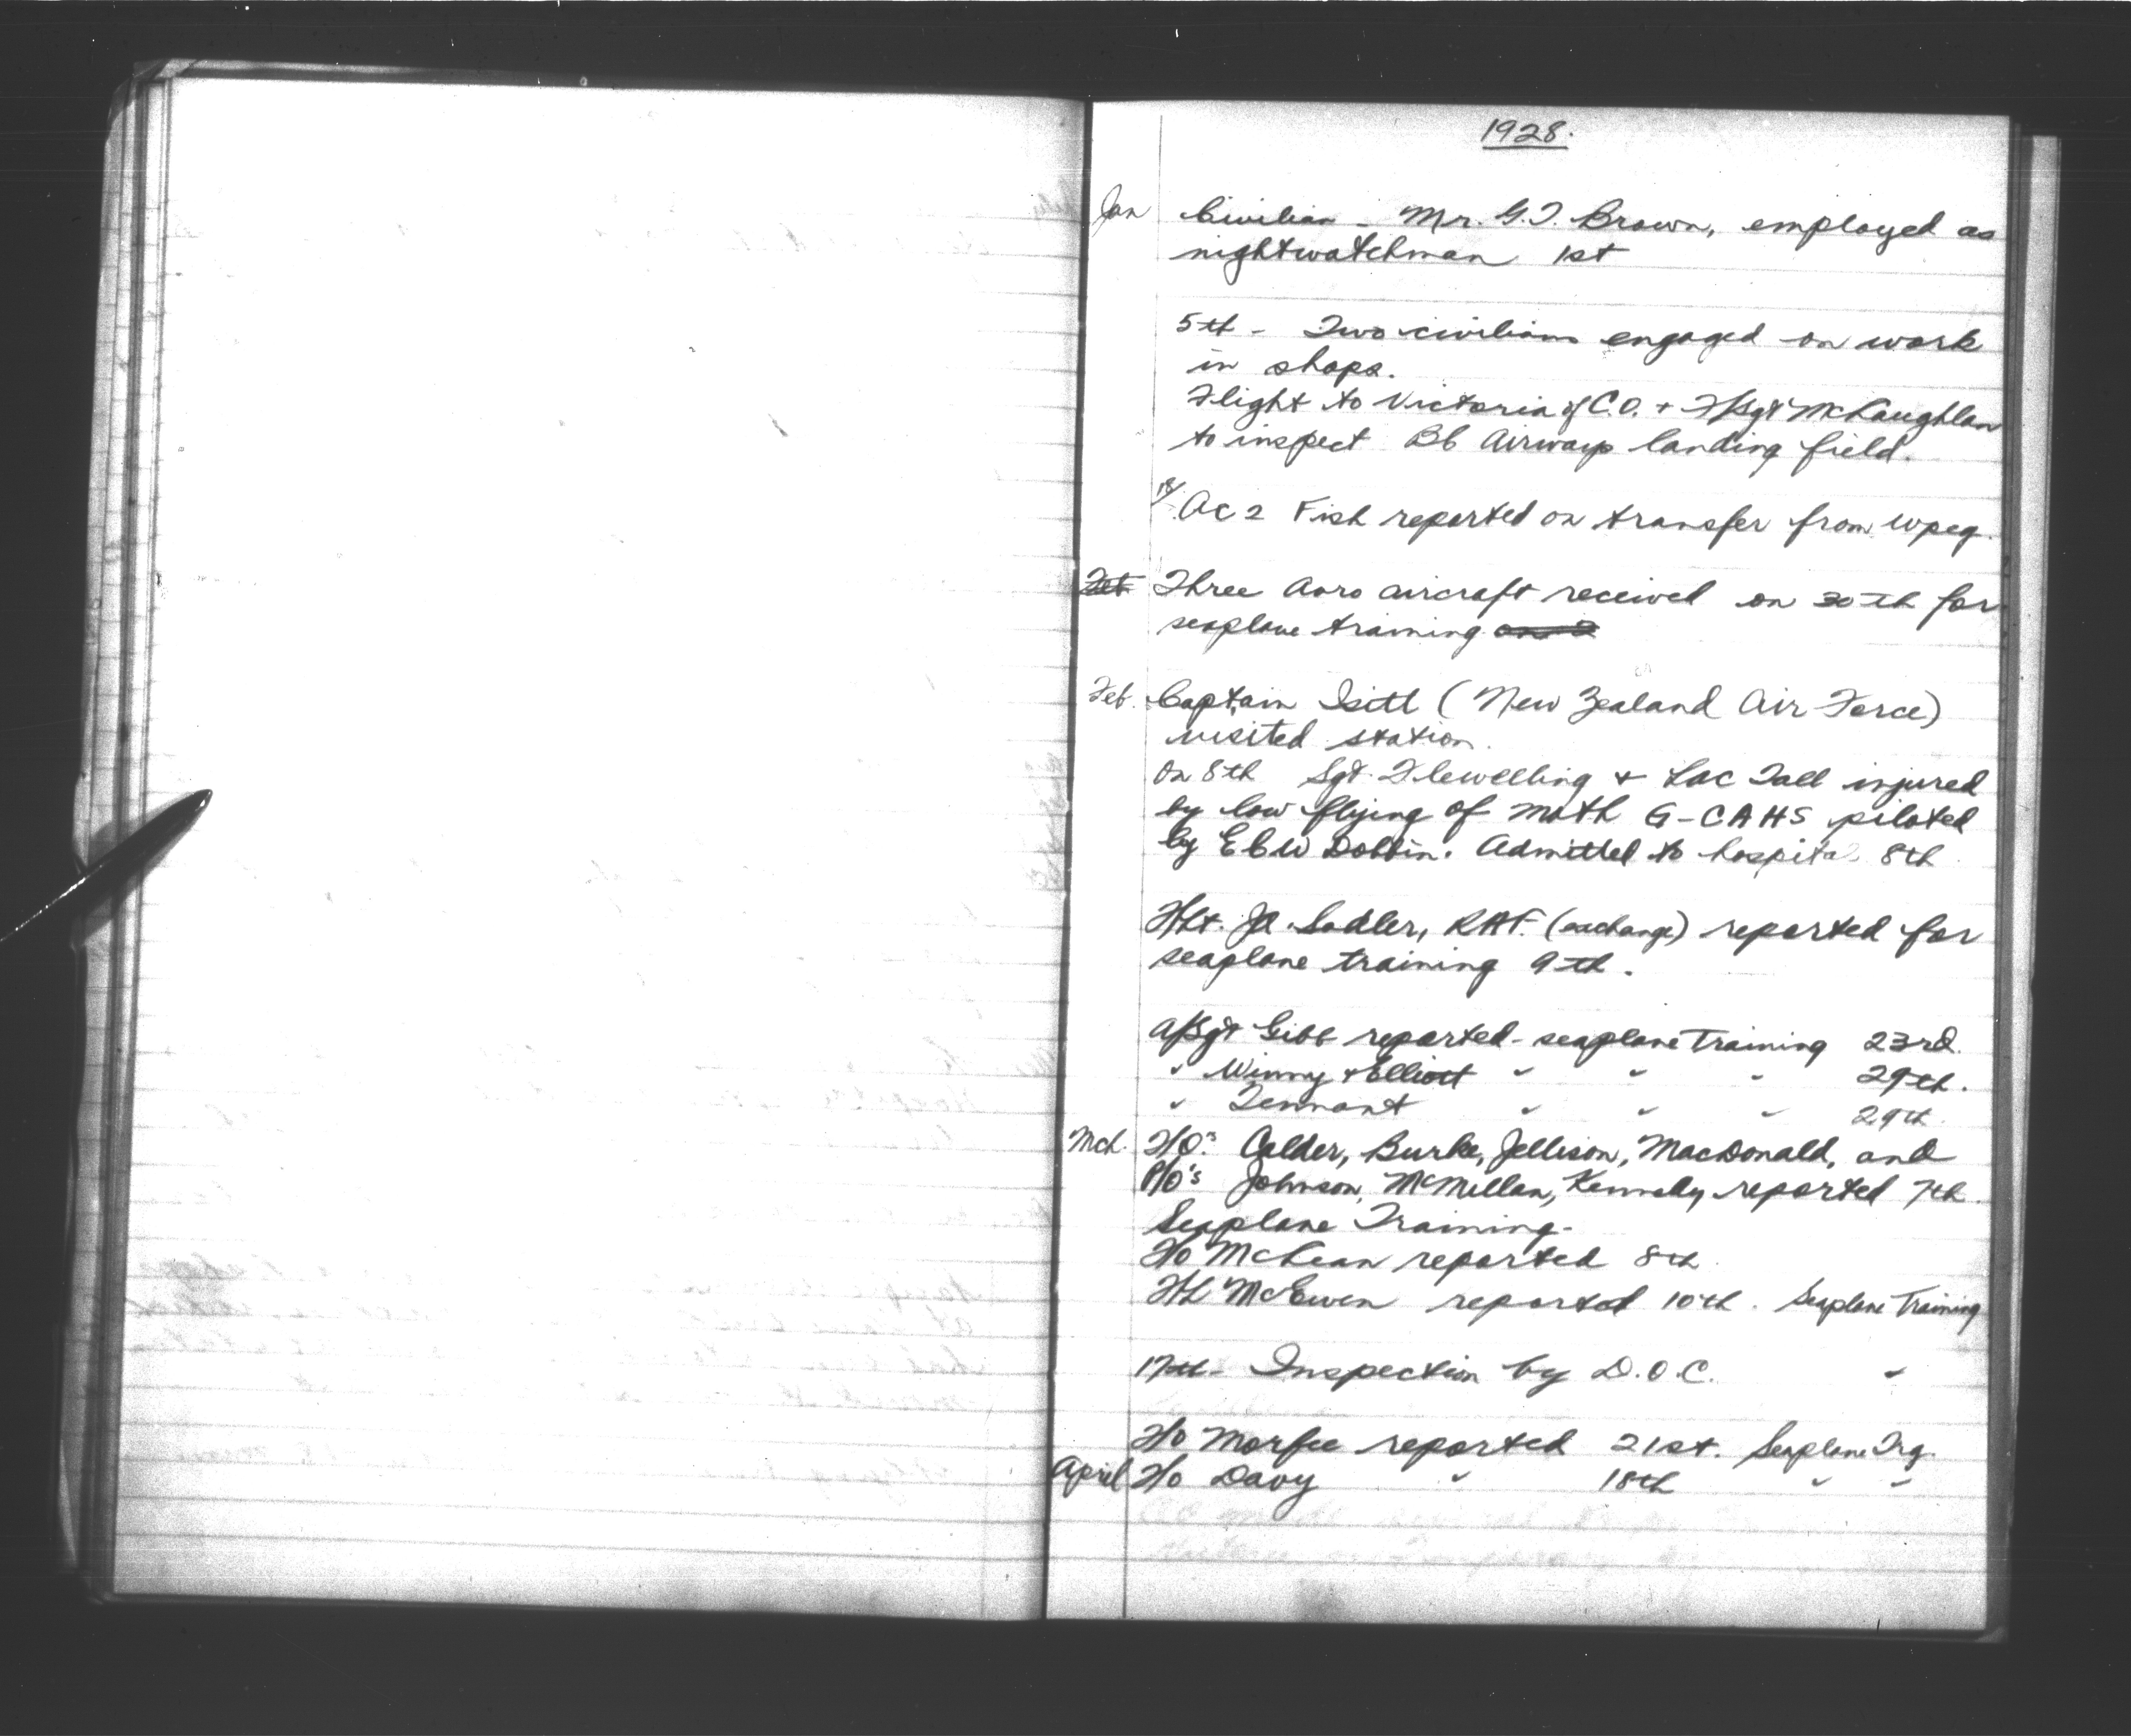 1928.
Jan Civilian - Mr. G.T. Brown, employed as
nightwatchman 1st
5th - Two civilians engaged on work
in shops.
Flight to Victoria of C.O. + F/Sgt McLaughlan
to inspect BC Airways landing field.
18/ AC2 Fish reported on transfer from Wpeg.
Feb Three Avro aircraft received on 30th for
seaplane training
Feb. Captain Isitt (New Zealand Air Force)
visited station.
On 8th Sgt. Flewelling + LAC Tall injured
by low flying of Moth G-CAHS piloted
by E C W Dobbin. Admitted to hospital 8th
F/Lt. Sadler, RAF. (exchange) reported for
seaplane training 9th.
A/Sgt Gibb reported - seaplane Training 23rd.
" Winny + Elliott " " " 29th.
" Tennant " " " 29th.
Mch. F/O's Calder, Burke, Jellison, MacDonald, and
P/O's Johnson, McMillan, Kennedy reported 7th
Seaplane Training-
F/O McLean reported 8th.
F/L McEwen reported 10th. Seaplane Training
17th- Inspection by D.O.C. "
F/O Morfee reported 21st. Seaplane Trg.
April F/O Davy " 18th " "